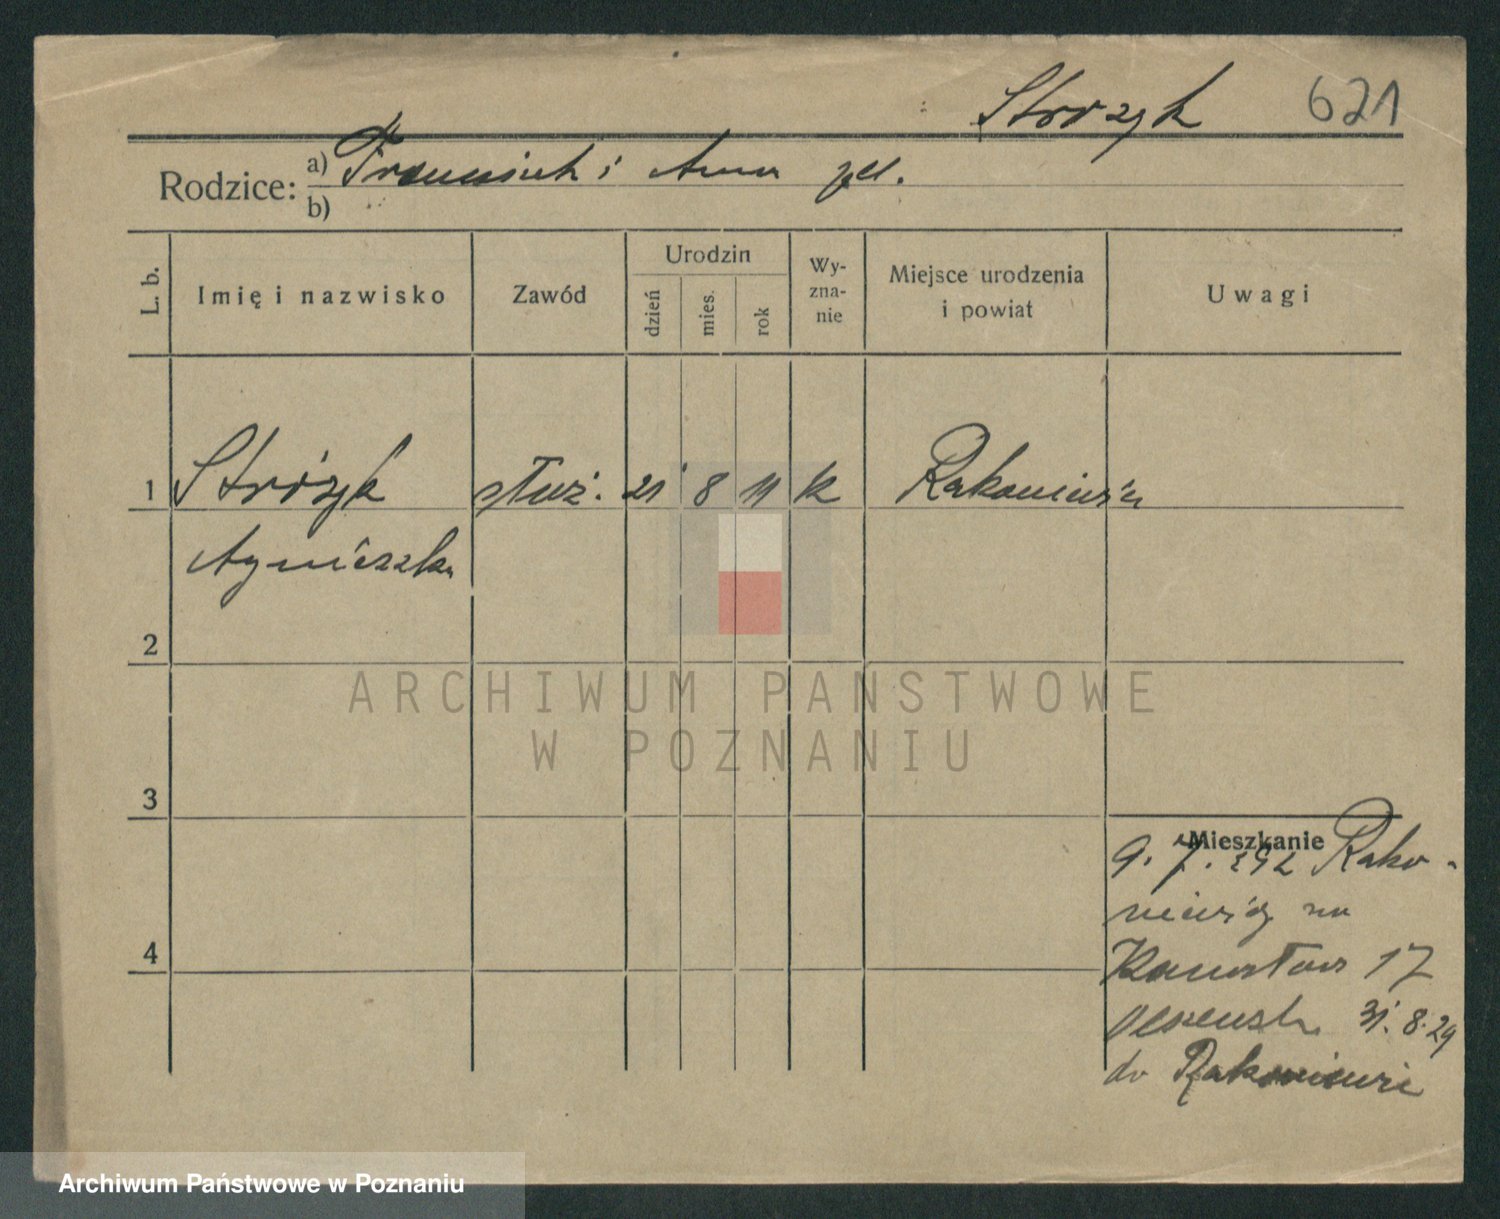 Stróżyk 621
Rodzice: a) Franciszek i Anna
b)
L. b. Imię i nazwisko Zawód Urodzin dzień mies. rok Wy-zna-nie Miejsce urodzenia i powiat Uwagi
1 Stróżyk służ. 21 8 11 k Rakoniewice
Agnieszka
2
ARCHIWUM PANSTWOWE
W POZNANIU
3
Mieszkanie
9. 7. Rako-
na
17
31. 8. 29
do Rakoniewic
4
Archiwum Państwowe w Poznaniu